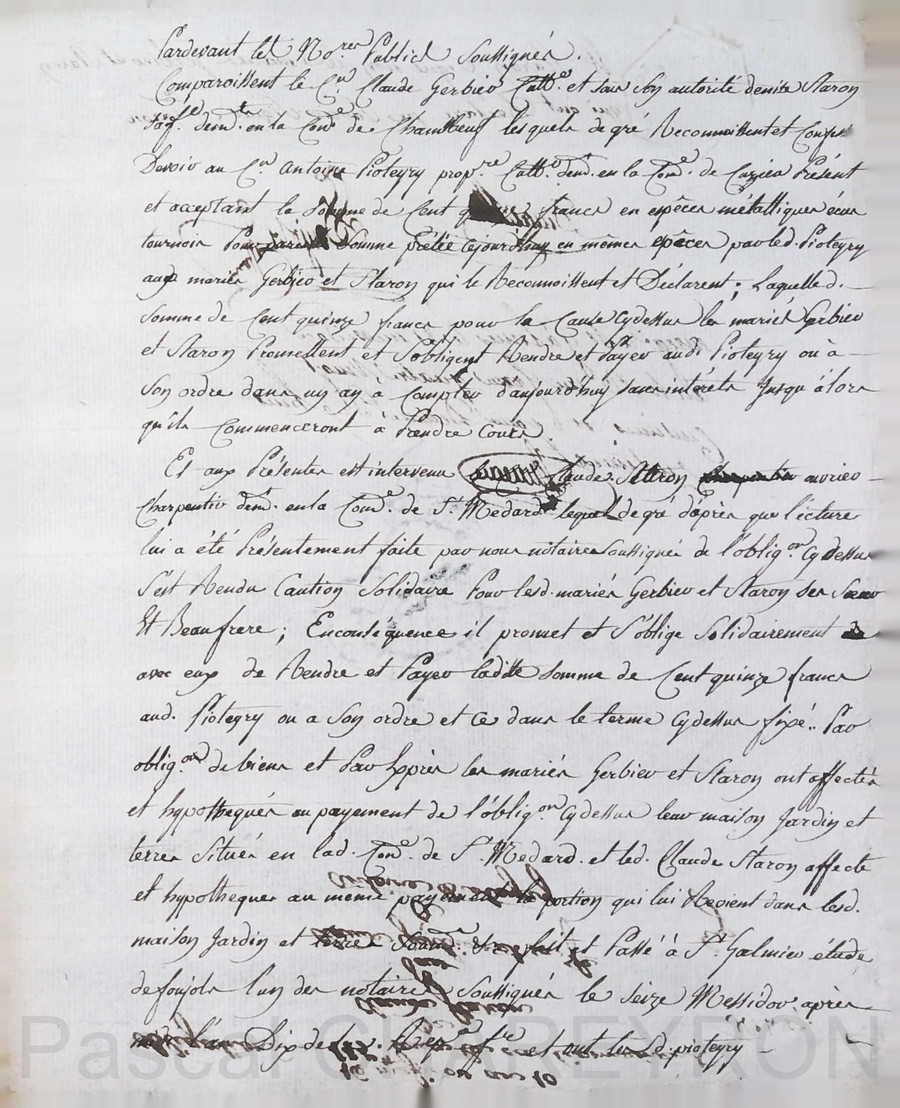 Pardevant les No.res Publics Soussignés.
Comparoissent le C.en Claude Gerbier Cult.r et sous Son autorité denise Staron
Sa f.e dem.ts en la Com.e de Chambeuf lesquels de gré Reconnoissent et Confessent
Devoir au C.en antoine Pioteyry prop.re Cult.r dem.t en la Com.e de Cuzieu Présent
et acceptant la Somme de Cent quinze francs en espèces métalliques écus
tournois Pour pareille Somme prêtée cejourd'huy en mêmes epêces par led. Pioteyry
aux mariés Gerbier et Staron qui le Reconnoissent et Déclarent ; Laquelle d.
Somme de Cent quinze francs pour la Cause Cydessus les mariés Gerbier
et Staron Promettent et S'obligent Rendre et Payer aud. Pioteyry ou à
Son ordre dans un an à Compter d'aujourd'huy sans intérêts Jusqu'àlors
qu'ils Commenceront à Prendre Cours.
Et aux Présentes est intervenu Claude Staron ouvrier
Charpentier dem.t en la Com.e de S.t Medard lequel de gré d'après que lécture
lui a été Présentement faite par nous notaires Soussignés de l'oblig.on Cydessus
S'est Rendu Caution Solidaire Pour lesd. mariés Gerbier et Staron ses Soeur
Et Beaufrere ; Enconséquence il promet et S'oblige Solidairement
avec eux de Rendre et Payer laditte Somme de Cent quinze francs
aud. Pioteyry ou a Son ordre et ce dans le terme Cydessus fixé. Par
oblig.on de biens et Par Exprès les mariés Gerbier et Staron ont affectés
et hypothequés au payement de l'oblig.on Cydessus leur maison Jardin et
terres Situés en lad. Com.e de S.t Medard. et led. Claude Staron affecte
et hypotheque au même payement la Portion qui lui Revient dans lesd.
maison Jardin et terres fait et Passé à S.t Galmier étude
de foujols l'un des notaires Soussignés le Seize Messidor après
l'an Dix de la Rep. f.se et ont led. pioteyry
Pascal CHAPEYRON